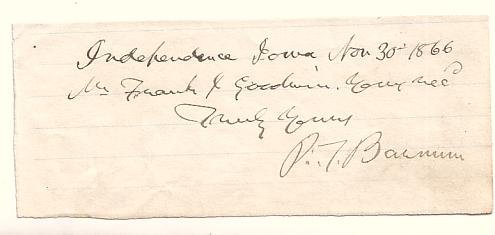 Independence Iowa Nov 30 1866
Mr Frank J Goodwin. Yours rec'd
Truly Yours
P. T. Barnum